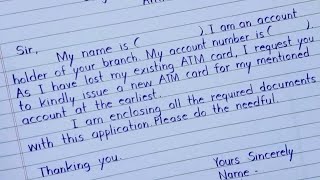 Sir,
My name is (          ). I am an account
holder of your branch. My account number is (      ).
As I have lost my existing ATM card, I request you
to kindly issue a new ATM card for my mentioned
account at the earliest.
I am enclosing all the required documents
with this application. Please do the needful.
Thanking you.
Yours Sincerely
Name -